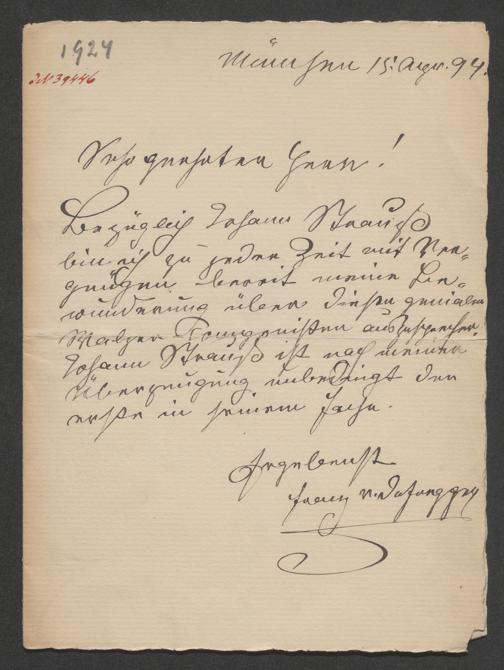 1924
IN 39446
München 15. Aug. 94.
Sehr geehrter Herr!
Bezüglich Johann Strauß
bin ich zu jeder Zeit mit Ver-
gnügen bereit meine Be-
wunderung über diesen genialen
Walzer auszusprechen.
Johann Strauß ist nach meiner
Überzeugung unbedingt der
erste in seinem Fache.
Ergebenst
Franz v. Defregger